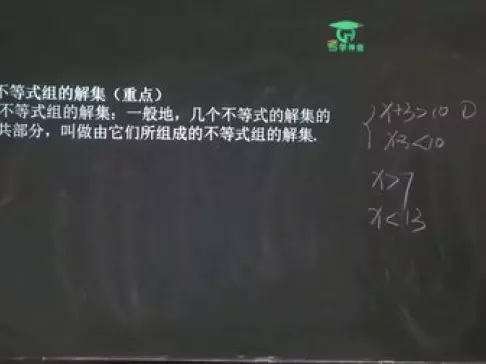 学伴侣
不等式组的解集（重点）
不等式组的解集：一般地，几个不等式的解集的
共部分，叫做由它们所组成的不等式组的解集.
x+3>10 ①
x-3<10
x>7
x<13